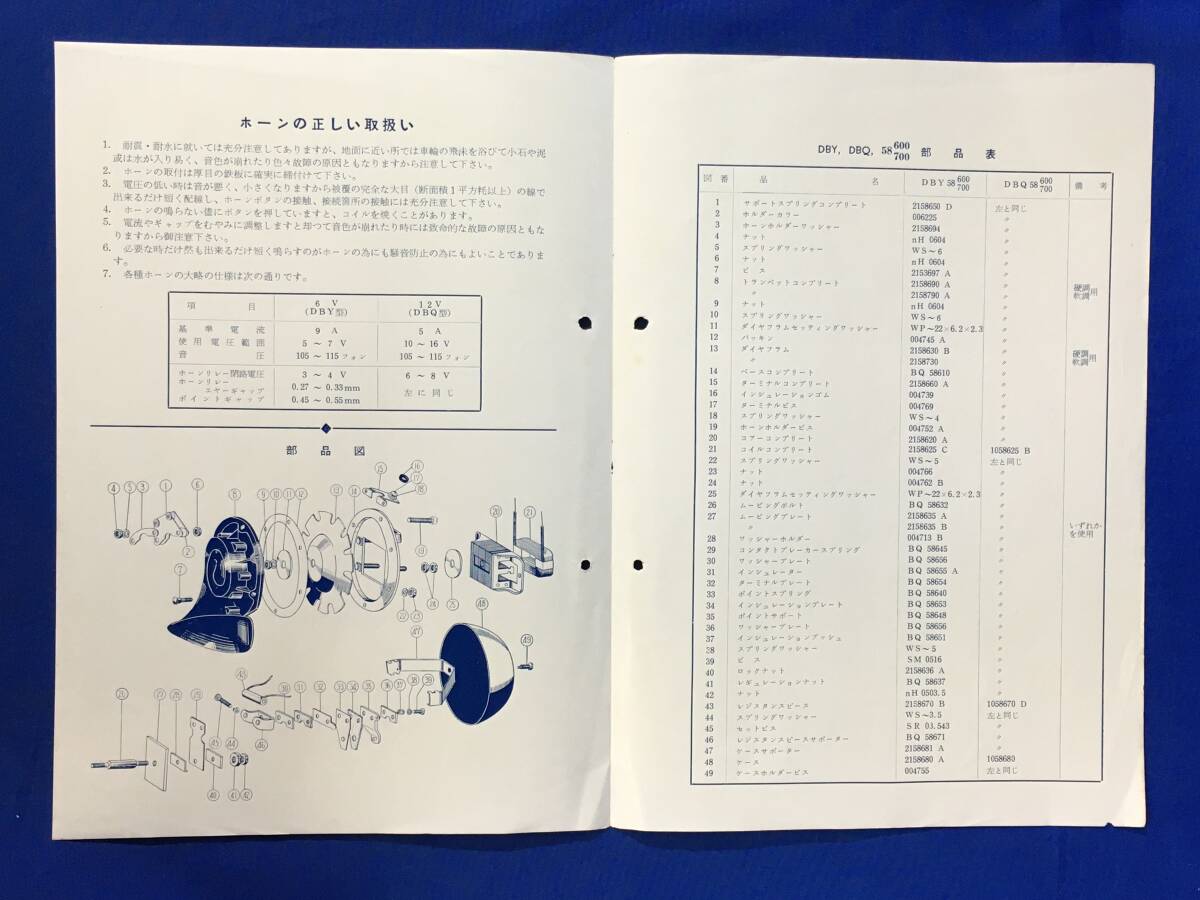 ホーンの正しい取扱い
1. 耐震・耐水に就いては充分注意してありますが、地面に近い所では車輪の飛沫を浴びて小石や泥
或は水が入り易く、音色が崩れたり色々故障の原因ともなりますから注意して下さい。
2. ホーンの取付は厚目の鉄板に確実に締付けて下さい。
3. 電圧の低い時は音が悪く、小さくなりますから被覆の完全な太目(断面積1平方粍以上)の線で
出来るだけ短く配線し、ホーンボタンの接触、接続箇所の接触には充分注意して下さい。
4. ホーンの鳴らない儘にボタンを押していますと、コイルを焼くことがあります。
5. 電流やギャップをむやみに調整しますと却つて音色が崩れたり時には致命的な故障の原因ともな
りますから御注意下さい。
6. 必要な時だけ然も出来るだけ短く鳴らすのがホーンの為にも騒音防止の為にもよいことでありま
す。
7. 各種ホーンの大略の仕様は次の通りです。
項目 6V (DBY型) 12V (DBQ型)
基準電流 9 A 5 A
使用電圧範囲 5 ~ 7 V 10 ~ 16 V
音圧 105 ~ 115 フォン 105 ~ 115 フォン
ホーンリレー閉路電圧 3 ~ 4 V 6 ~ 8 V
ホーンリレー
エヤーギャップ 0.27 ~ 0.33mm 左に同じ
ポイントギャップ 0.45 ~ 0.55mm
部品図
④ ⑤ ③ ① ⑥ ⑧ ⑨ ⑩ ⑪ ⑫ ⑬ ⑭ ⑮ ⑯ ⑰ ⑱ ⑳ ㉑
② ⑦ ⑲ ㉔ ㉕ ㉒ ㉓ ㊼ ㊽ ㊾
㊸ ㉚ ㉛ ㉜ ㉝ ㉞ ㉟ ㊱ ㊲ ㊳ ㊴
㉖ ㉗ ㉘ ㉙ ㊺ ㊹ ㊻ ㊵ ㊶ ㊷
DBY, DBQ, 58 600/700 部品表
図番 品名 DBY58 600/700 DBQ58 600/700 備考
1 サポートスプリングコンプリート 2158650 D 左と同じ
2 ホルダーカラー 006225 〃
3 ホーンホルダーワッシャー 2158694 〃
4 ナット nH 0604 〃
5 スプリングワッシャー WS~6 〃
6 ナット nH 0604 〃
7 ビス 2153697 A 〃
8 トランペットコンプリート 2158690 A 〃 硬調用
〃 2158790 A 〃 軟調用
9 ナット nH 0604 〃
10 スプリングワッシャー WS~6 〃
11 ダイヤフラムセッティングワッシャー WP~22×6.2×2.3 〃
12 パッキン 004745 A 〃
13 ダイヤフラム 2158630 B 〃 硬調用
〃 2158730 〃 軟調用
14 ベースコンプリート BQ 58610 〃
15 ターミナルコンプリート 2158660 A 〃
16 インシュレーションゴム 004739 〃
17 ターミナルビス 004769 〃
18 スプリングワッシャー WS~4 〃
19 ホーンホルダービス 004752 A 〃
20 コアーコンプリート 2158620 A 〃
21 コイルコンプリート 2158625 C 1058625 B
22 スプリングワッシャー WS~5 左と同じ
23 ナット 004766 〃
24 ナット 004762 B 〃
25 ダイヤフラムセッティングワッシャー WP~22×6.2×2.3 〃
26 ムービングボルト BQ 58632 〃
27 ムービングプレート 2158635 A 〃 いずれか
〃 2158635 B 〃 を使用
28 ワッシャーホルダー 004713 B 〃
29 コンタクトブレーカースプリング BQ 58645 〃
30 ワッシャープレート BQ 58656 〃
31 インシュレーター BQ 58655 A 〃
32 ターミナルプレート BQ 58654 〃
33 ポイントスプリング BQ 58640 〃
34 インシュレーションプレート BQ 58653 〃
35 ポイントサポート BQ 58648 〃
36 ワッシャープレート BQ 58656 〃
37 インシュレーションブッシュ BQ 58651 〃
38 スプリングワッシャー WS~5 〃
39 ビス SM 0516 〃
40 ロックナット 2158636 A 〃
41 レギュレーションナット BQ 58637 〃
42 ナット nH 0503.5 〃
43 レジスタンスピース 2158670 B 1058670 D
44 スプリングワッシャー WS~3.5 左と同じ
45 セットビス SR 03.543 〃
46 レジスタンスピースサポーター BQ 58671 〃
47 ケースサポーター 2158681 A 〃
48 ケース 2158680 A 1058680
49 ケースホルダービス 004755 左と同じ